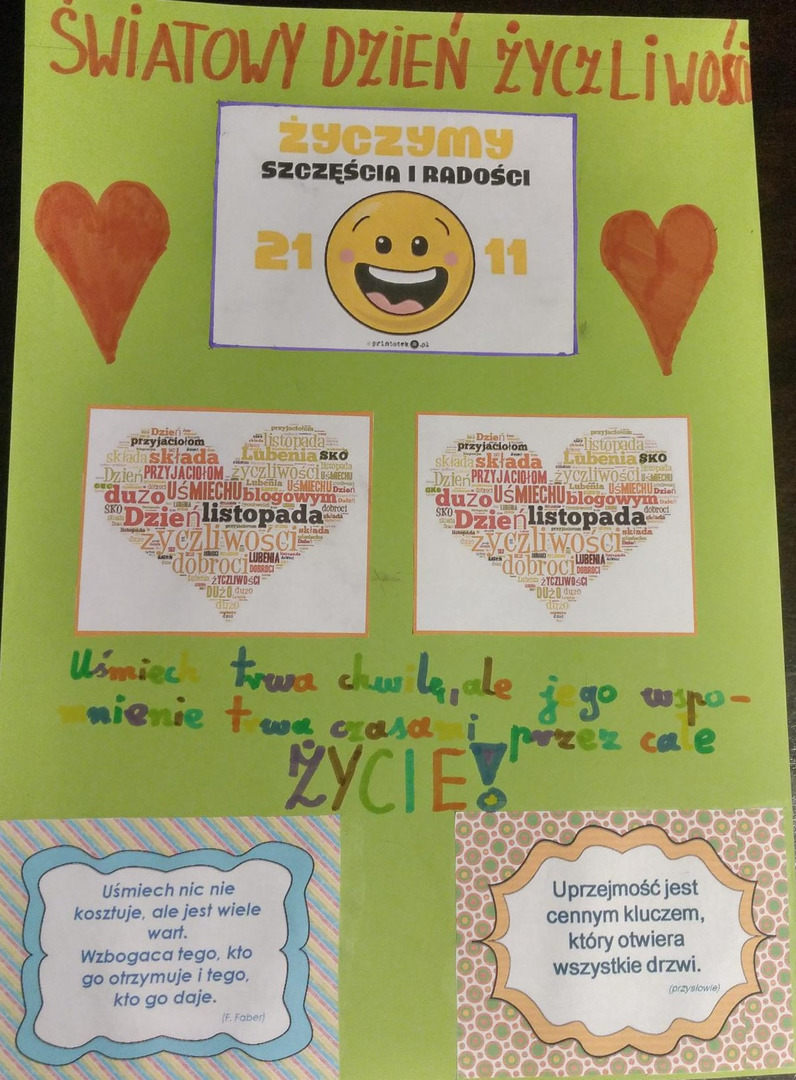 ŚWIATOWY DZIEŃ ŻYCZLIWOŚCI
ŻYCZYMY
SZCZĘŚCIA I RADOŚCI
21 11
printotek.pl
Dzień
przyjaciołom
listopada
składa
składa
Lubenia
SKO
Dzień
PRZYJACIOŁOM
życzliwości
UŚMIECHU
dużo
UŚMIECHU
blogowym
SKO
Dzień
listopada
dobroci
życzliwości
składa
dobroci
LUBENIA
DOBROCI
Lubenia
ŻYCZLIWOŚCI
DUŻO
dużo
dużo
Dzień
przyjaciołom
listopada
składa
składa
Lubenia
SKO
Dzień
PRZYJACIOŁOM
życzliwości
UŚMIECHU
dużo
UŚMIECHU
blogowym
SKO
Dzień
listopada
dobroci
życzliwości
składa
dobroci
LUBENIA
DOBROCI
Lubenia
ŻYCZLIWOŚCI
DUŻO
dużo
dużo
Uśmiech trwa chwilę, ale jego wspo-
mnienie trwa czasami przez całe
ŻYCIE!
Uśmiech nic nie
kosztuje, ale jest wiele
wart.
Wzbogaca tego, kto
go otrzymuje i tego,
kto go daje.
(F. Faber)
Uprzejmość jest
cennym kluczem,
który otwiera
wszystkie drzwi.
(przysłowie)